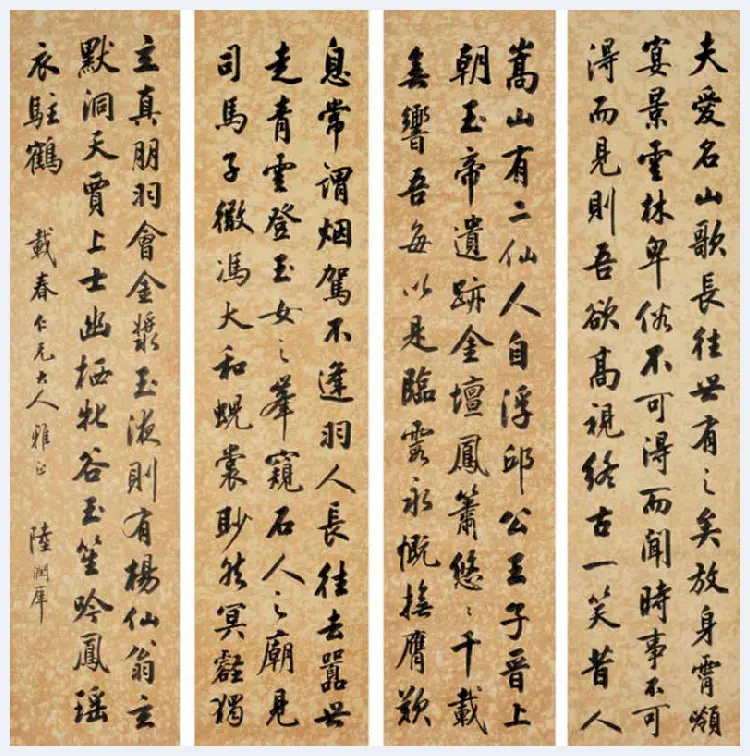 夫愛名山歌長往世有之矣放身霄嶺
宴景雲林卑俗不可得而聞時事不可
得而見則吾欲高視終古一笑昔人
嵩山有二仙人自浮邱公王子晉上
朝玉帝遺跡金壇鳳簫悠〻千載
無響吾每以是臨霞永慨撫膺歎
息常謂烟駕不逢羽人長往去囂世
走青雲登玉女之峯窺石人之廟見
司馬子微馮大和蜺裳眇然冥壑獨
立真朋羽會金漿玉液則有楊仙翁玄
默洞天賈上士幽栖牝谷玉笙吟鳳瑤
衣駐鶴
載春仁兄大人雅正
陸潤庠